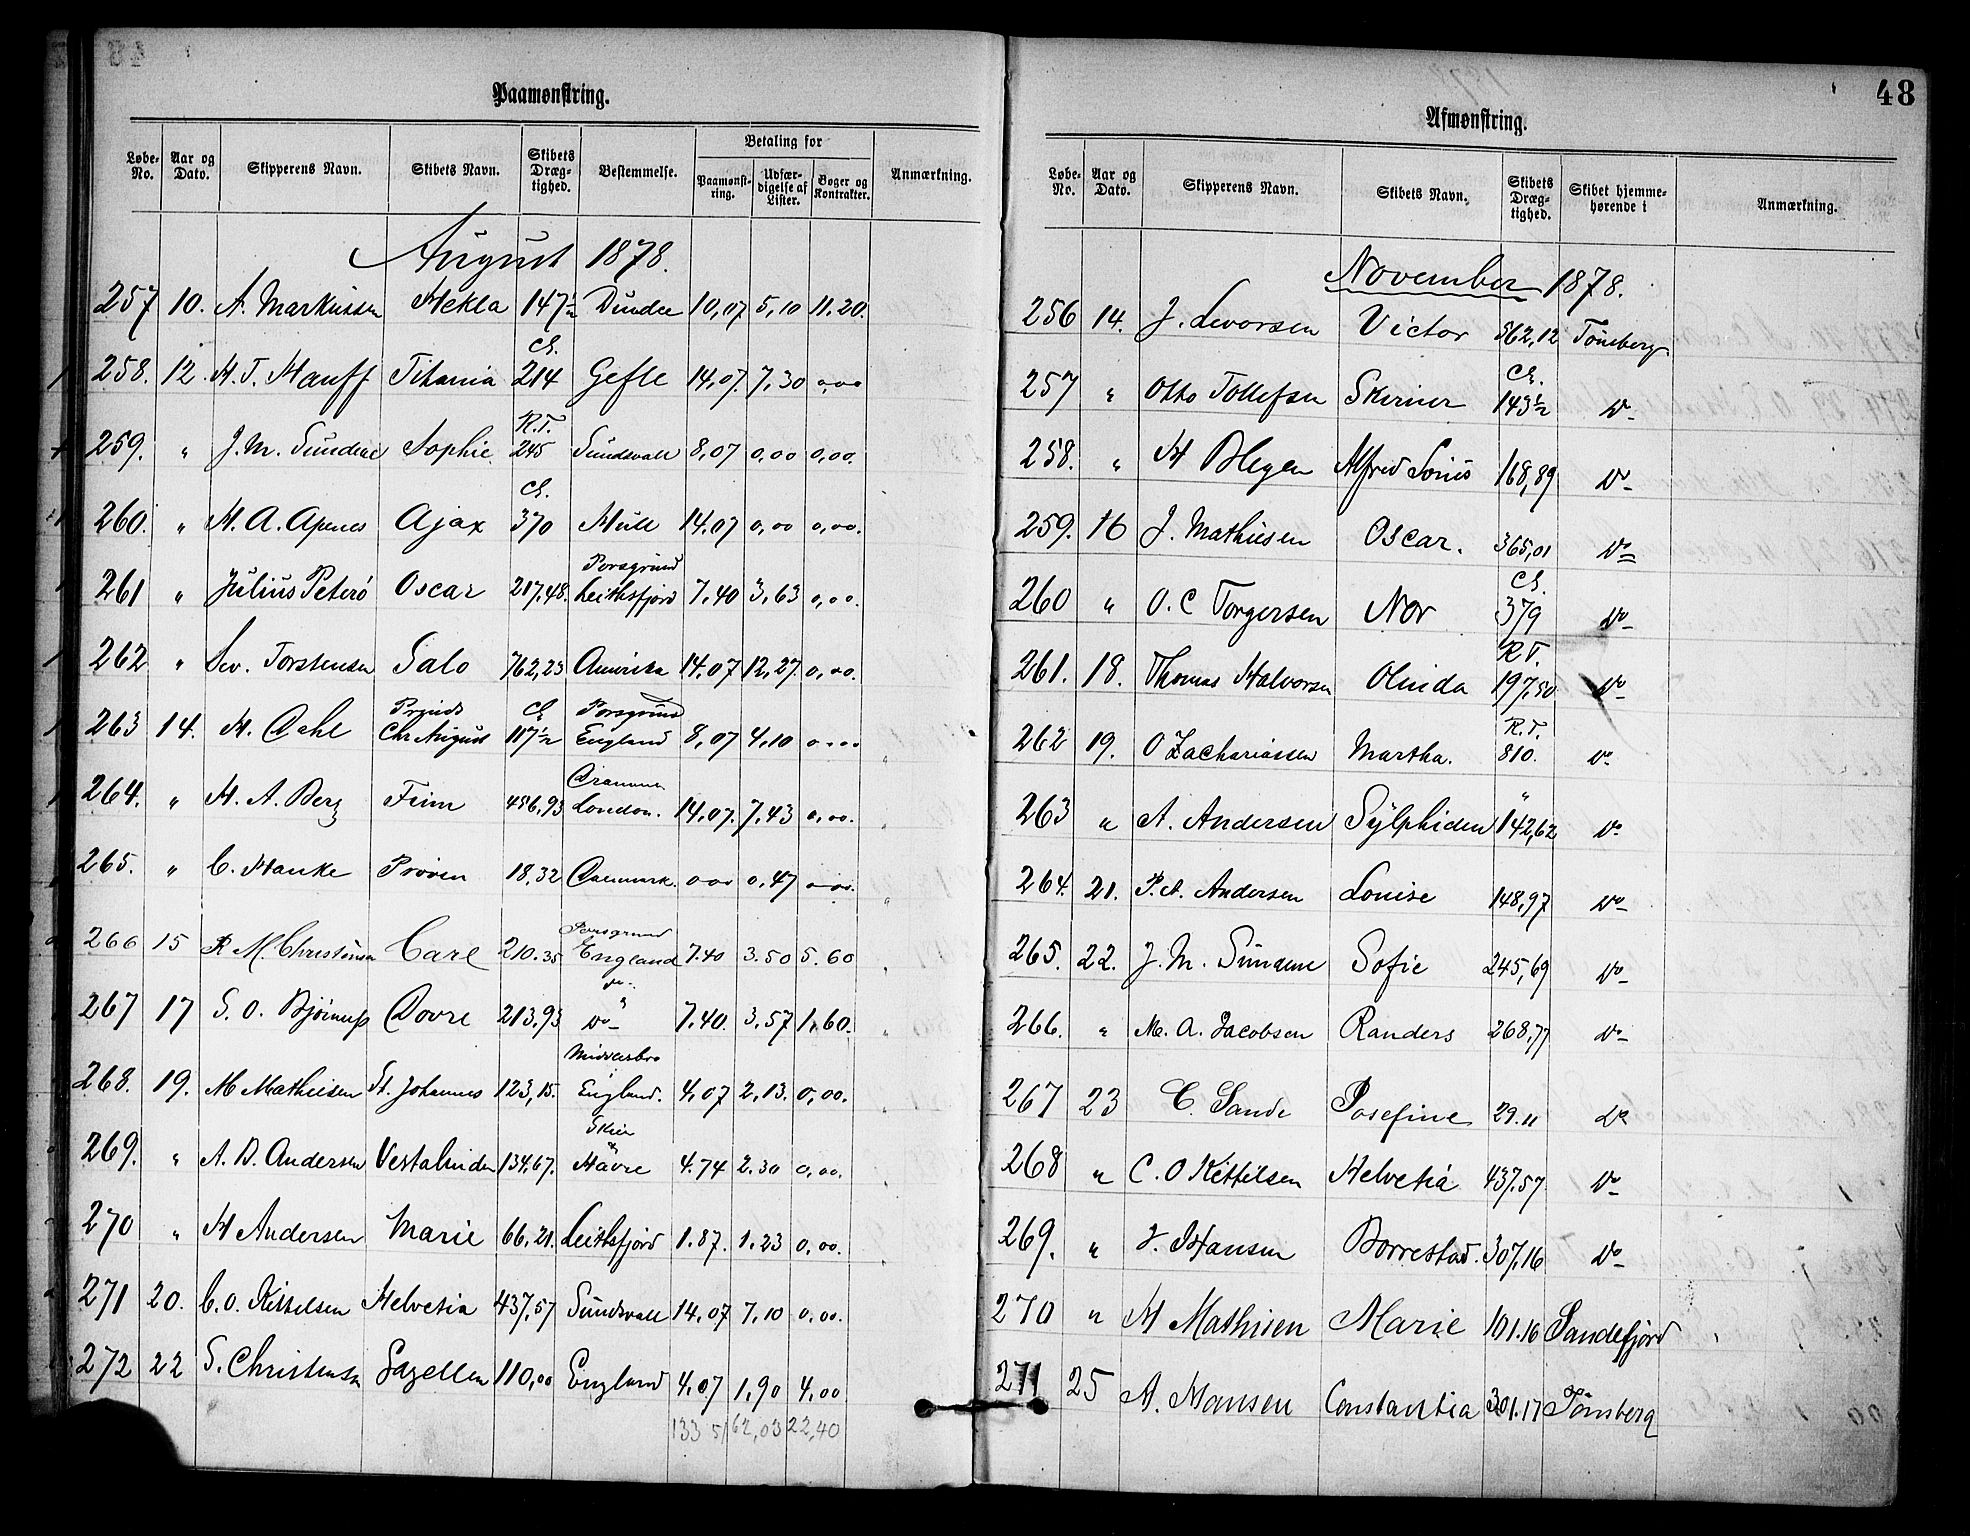 48
Paamønstring.
Løbe-No. Aar og Dato. Skipperens Navn. Skibets Navn. Skibets Dræg-tighed. Bestemmelse. Betaling for Paamønst-ring. Udfær-digelse af Lister. Bøger og Kontrakter. Anmærkning.
August 1878.
257 10. A. Markussen Hekla 147½ Dundee 10,07 5,10 11.20.
Cl.
258. 12. H. T. Hauff Titania 214 Gefle 14,07. 7,30 0,00
R.T.
259. " J. M. Sundene Sophie 245 Sundsvall 8,07 0,00 0,00.
Cl.
260. " H. A. Apenes Ajax 370 Hull 14.07 0,00 0,00.
Porsgrund
261 " Julius Peterö Oscar 217,48. Leithsfjord 7,40 3,63 0,00.
262 " Lev. Torstensen Salo 762,23 Amerika 14,07 12,27. 0,00.
Prinds Cl. Porsgrund
263 14. H. Dahl Chr August 117½ England 8,07 4,10 0,00
Drammen
264. " H. A. Berg Feim 456,93 London. 14,07. 7,43 0,00.
265. " C. Hanke Prøven 18,32 Danmark. 0,00 0,47 0,00.
Porsgrund
266 15 R M. Christensen Carl 210.35 England 7.40 3.50 5.60
267 17 S. O. Bjönness Dovre 213,93 Do 7,40. 3,57 1,60.
268. 19. M Mathiesen St. Johannes 123,15. England. 4,07 2,13. 0,00.
Skien
269. " A. B. Andersen Vestalinden 134.67. Havre 4.74 2.30 0,00.
270 " H Andersen Marie 66.21. Leithsfjord 1.87. 1,23 0,00.
271 20. C. O. Kittelsen Helvetia 437,57 Sundsvall 14,07 7,10 0,00.
272 22 S. Christensen Gazellen 110,00 England 4,07 1,90 4,00
133 51 62,03 22,40
48
Afmønstring.
Løbe-No. Aar og Dato. Skipperens Navn. Skibets Navn. Skibets Dræg-tighed. Skibet hjemme-hørende i Anmærkning.
November 1878.
256 14. J. Levorsen Victor 562,12 Tönsberg
Cl.
257 " Otto Tollefsen Skirner 143½ Do
258. " H Blegen Alfred Lorius 168,89 Do
259. 16 J. Mathiesen Oscar. 365,01 Do
Cl.
260 " O. C Torgersen Nor 379 Do
R.T.
261. 18. Thomas Halvorsen Olinda 197,50 Do
R.T.
262 19. O Zachariassen Martha. 810. Do
"
263 " A. Andersen Sylphiden 142,62 Do
264. 21. P. A. Andersen Louise 148,97 Do
265. 22. J. M. Sundene Sofie 245,69 Do
266. " M. A. Jacobsen Randers 268,77 Do
267 23 C. Sande Josefine 29.11 Do
268 " C. O Kittilsen Helvetia 437.57 Do
269. " J. Hansen Borrestad. 307,16 Do
270 " H Mathisen Marie 101.16 Sandefjord
271 25 A. Hansen Constantia 301.17 Tönsberg